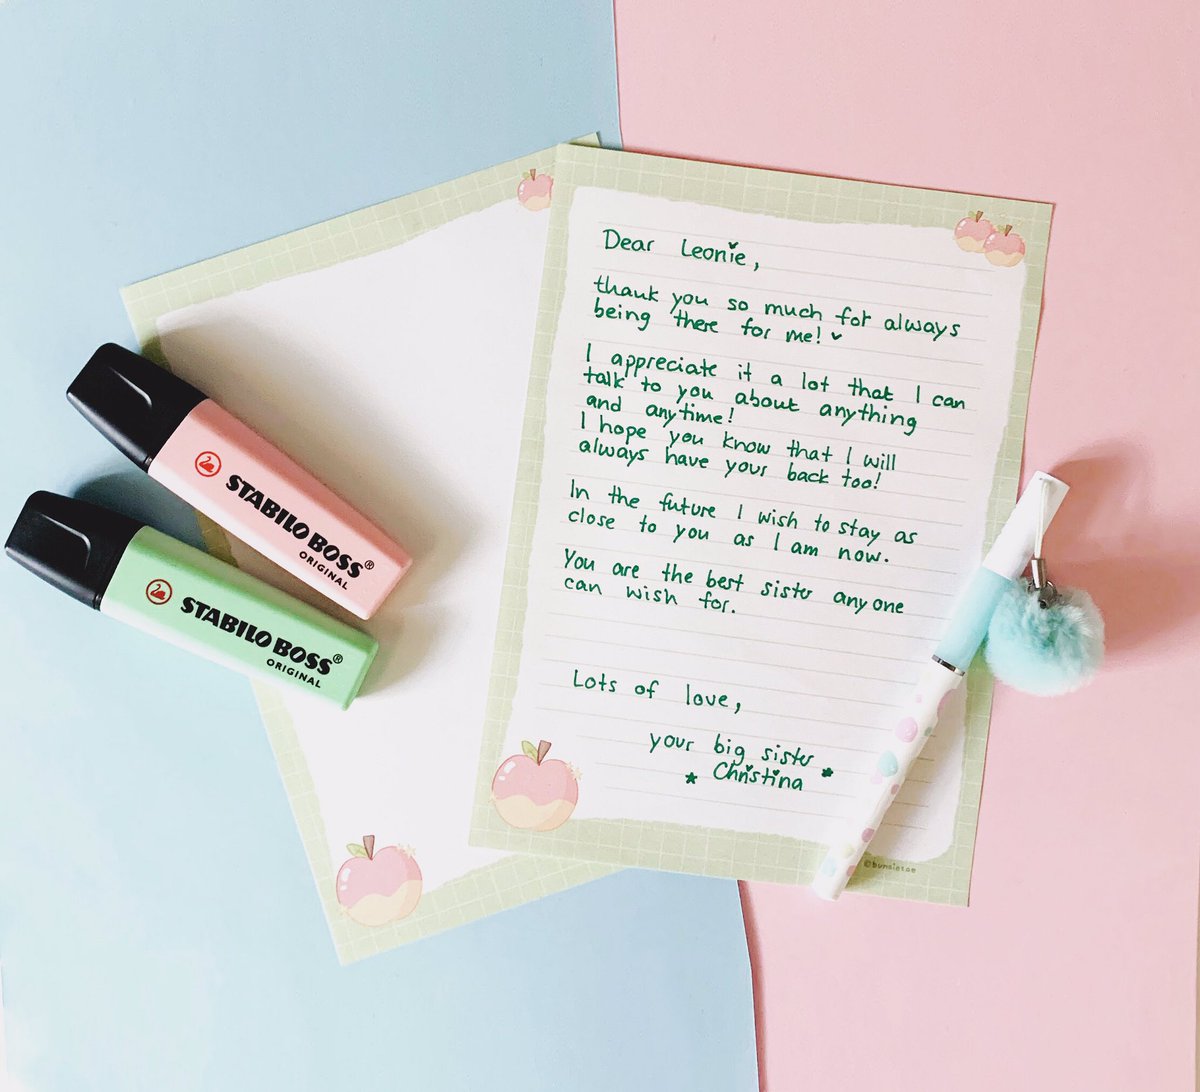 Dear Leonie,
thank you so much for always
being there for me!
I appreciate it a lot that I can
talk to you about anything
and anytime!
I hope you know that I will
always have your back too!
In the future I wish to stay as
close to you as I am now.
You are the best sister anyone
can wish for.
Lots of love,
your big sister
Christina
©bunniesoe
STABILO BOSS®
ORIGINAL
STABILO BOSS®
ORIGINAL